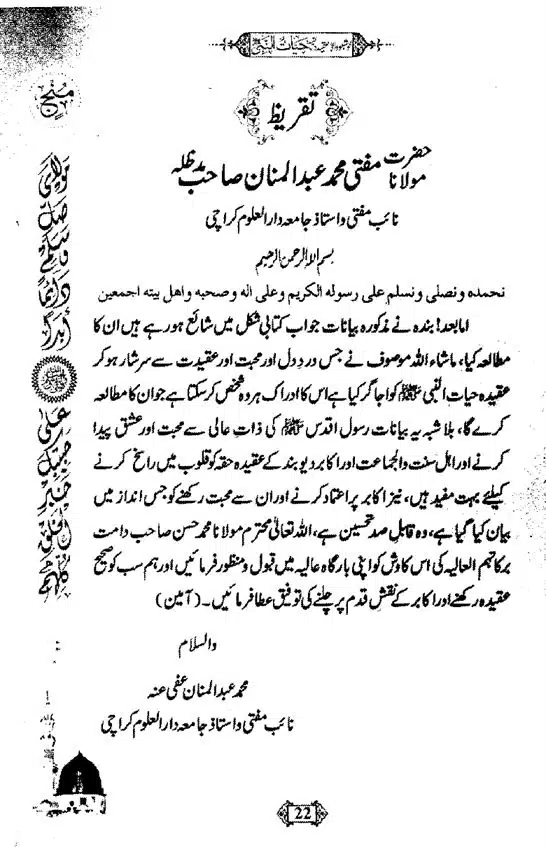 تقریظ
حضرت مولانا مفتی محمد عبدالمنان صاحب مدظلہ
نائب مفتی و استاذ جامعہ دارالعلوم کراچی
بسم اللہ الرحمن الرحیم
نحمدہ ونصلی ونسلم علی رسولہ الکریم وعلی الہ وصحبہ واھل بیتہ اجمعین
امابعد! بندہ نے مذکورہ بیانات جو اب کتابی شکل میں شائع ہو رہے ہیں ان کا
مطالعہ کیا، ماشاء اللہ موصوف نے جس دردِ دل اور محبت اور عقیدت سے سرشار ہو کر
عقیدہ حیات النبی ﷺ کو اجاگر کیا ہے اس کا ادراک ہر وہ شخص کر سکتا ہے جو ان کا مطالعہ
کرے گا، بلا شبہ یہ بیانات رسول اقدس ﷺ کی ذات عالی سے محبت اور عشق پیدا
کرنے اور اہل سنت والجماعت اور اکابر دیوبند کے عقیدہ حقہ کو قلوب میں راسخ کرنے
کیلئے بہت مفید ہیں، نیز اکابر پر اعتماد کرنے اور ان سے محبت رکھنے کو جس انداز میں
بیان کیا گیا ہے، وہ قابل صد تحسین ہے، اللہ تعالیٰ محترم مولانا محمد حسن صاحب دامت
برکاتہم العالیہ کی اس کاوش کو اپنی بارگاہ عالیہ میں قبول و منظور فرمائیں اور ہم سب کو صحیح
عقیدہ رکھنے اور اکابر کے نقش قدم پر چلنے کی توفیق عطا فرمائیں۔ (آمین)
والسلام
محمد عبدالمنان عفی عنہ
نائب مفتی و استاذ جامعہ دارالعلوم کراچی
22
مولای صل وسلم دائما ابدا
علی حبیبک خیر الخلق کلھم